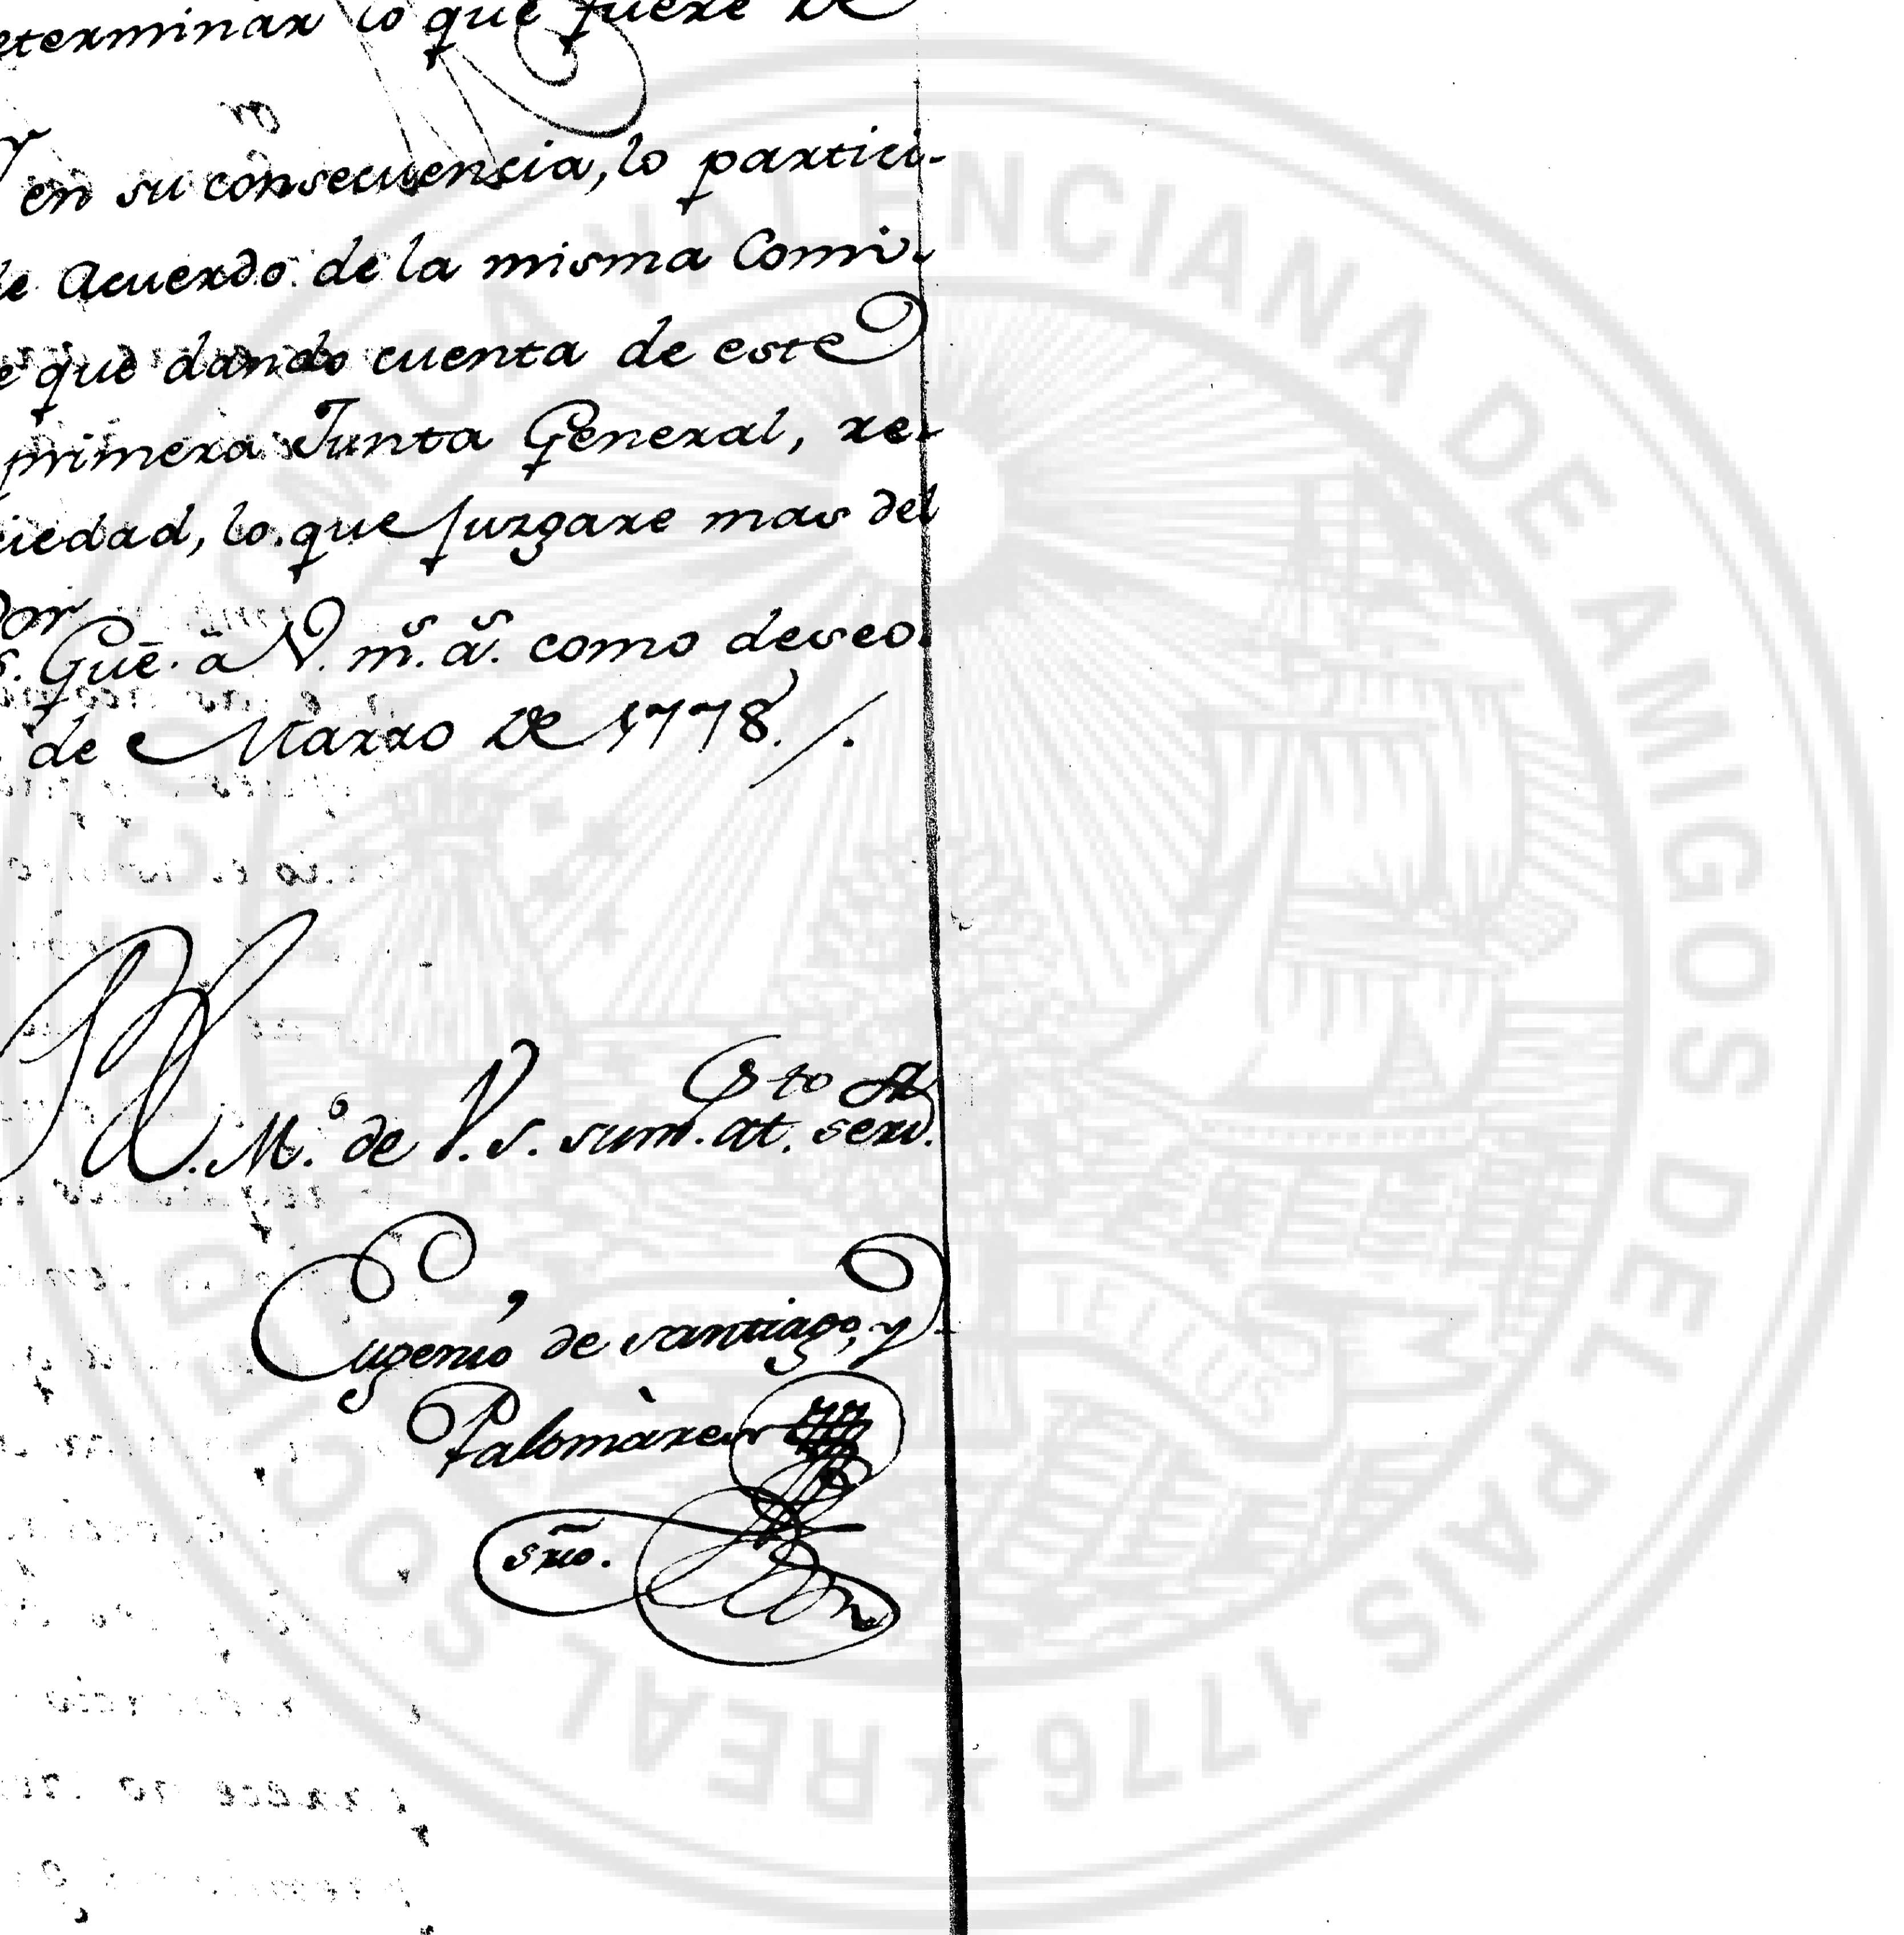 eterminar lo que fuere de
Y en su consecuencia, lo partici-
de Acuerdo de la misma Comi-
e que dando cuenta de este
primera Junta General, re-
ciedad, lo que juzgare mas del
s. Gue. a V. m.s a.s como deseo.
de Marzo de 1778./.
B. L. M.o de V. S. sum. at. serv.
Eugenio de Santiago, y
Palomàres
srio.
REAL SOCIEDAD ECONOMICA VALENCIANA DE AMIGOS DEL PAIS 1776